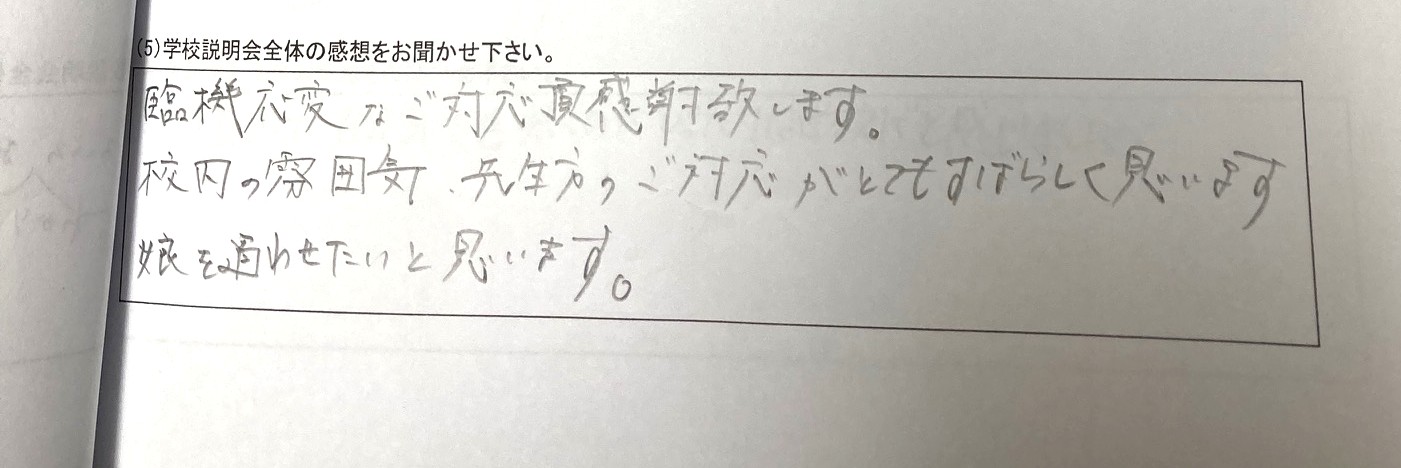 (5)学校説明会全体の感想をお聞かせ下さい。
臨機応変なご対応頂感謝致します。
校内の雰囲気、先生方のご対応がとてもすばらしく思います
娘を通わせたいと思います。